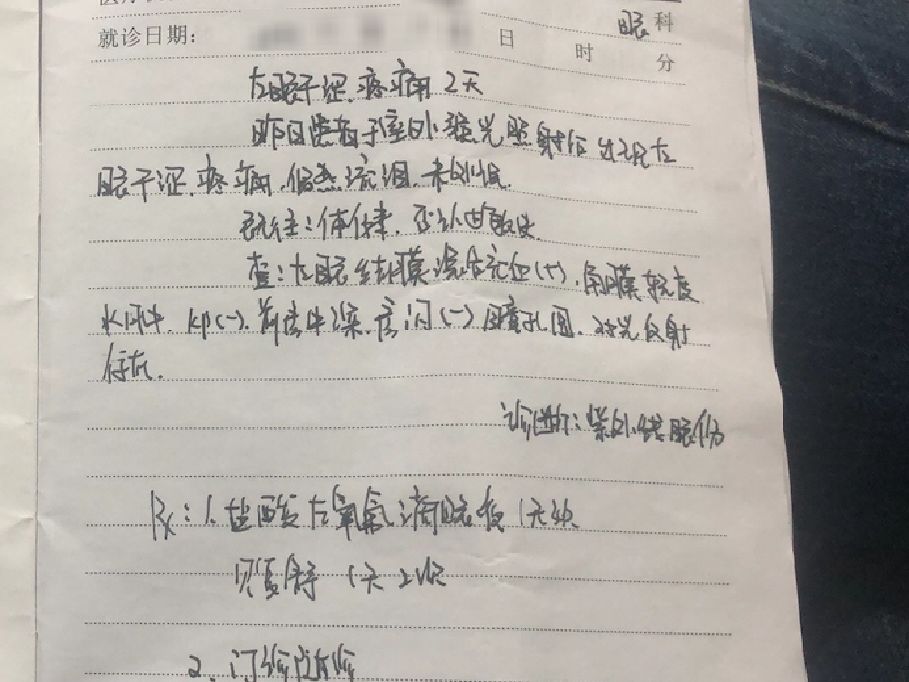 眼科
就诊日期： 日 时 分
左眼干涩、疼痛2天
昨日患者于室外强光照射后出现左
眼干涩、疼痛、伴畏光流泪、未处理.
既往：体健，否认过敏史
查：左眼结膜混合充血(+)，角膜轻度
水肿，kp(-)，前房中深，房闪(-) 瞳孔圆，对光反射
存在.
诊断：紫外线眼伤
Rx：1. 盐酸左氧氟滴眼液 1天4次
贝复舒 1天2次
2. 门诊随诊